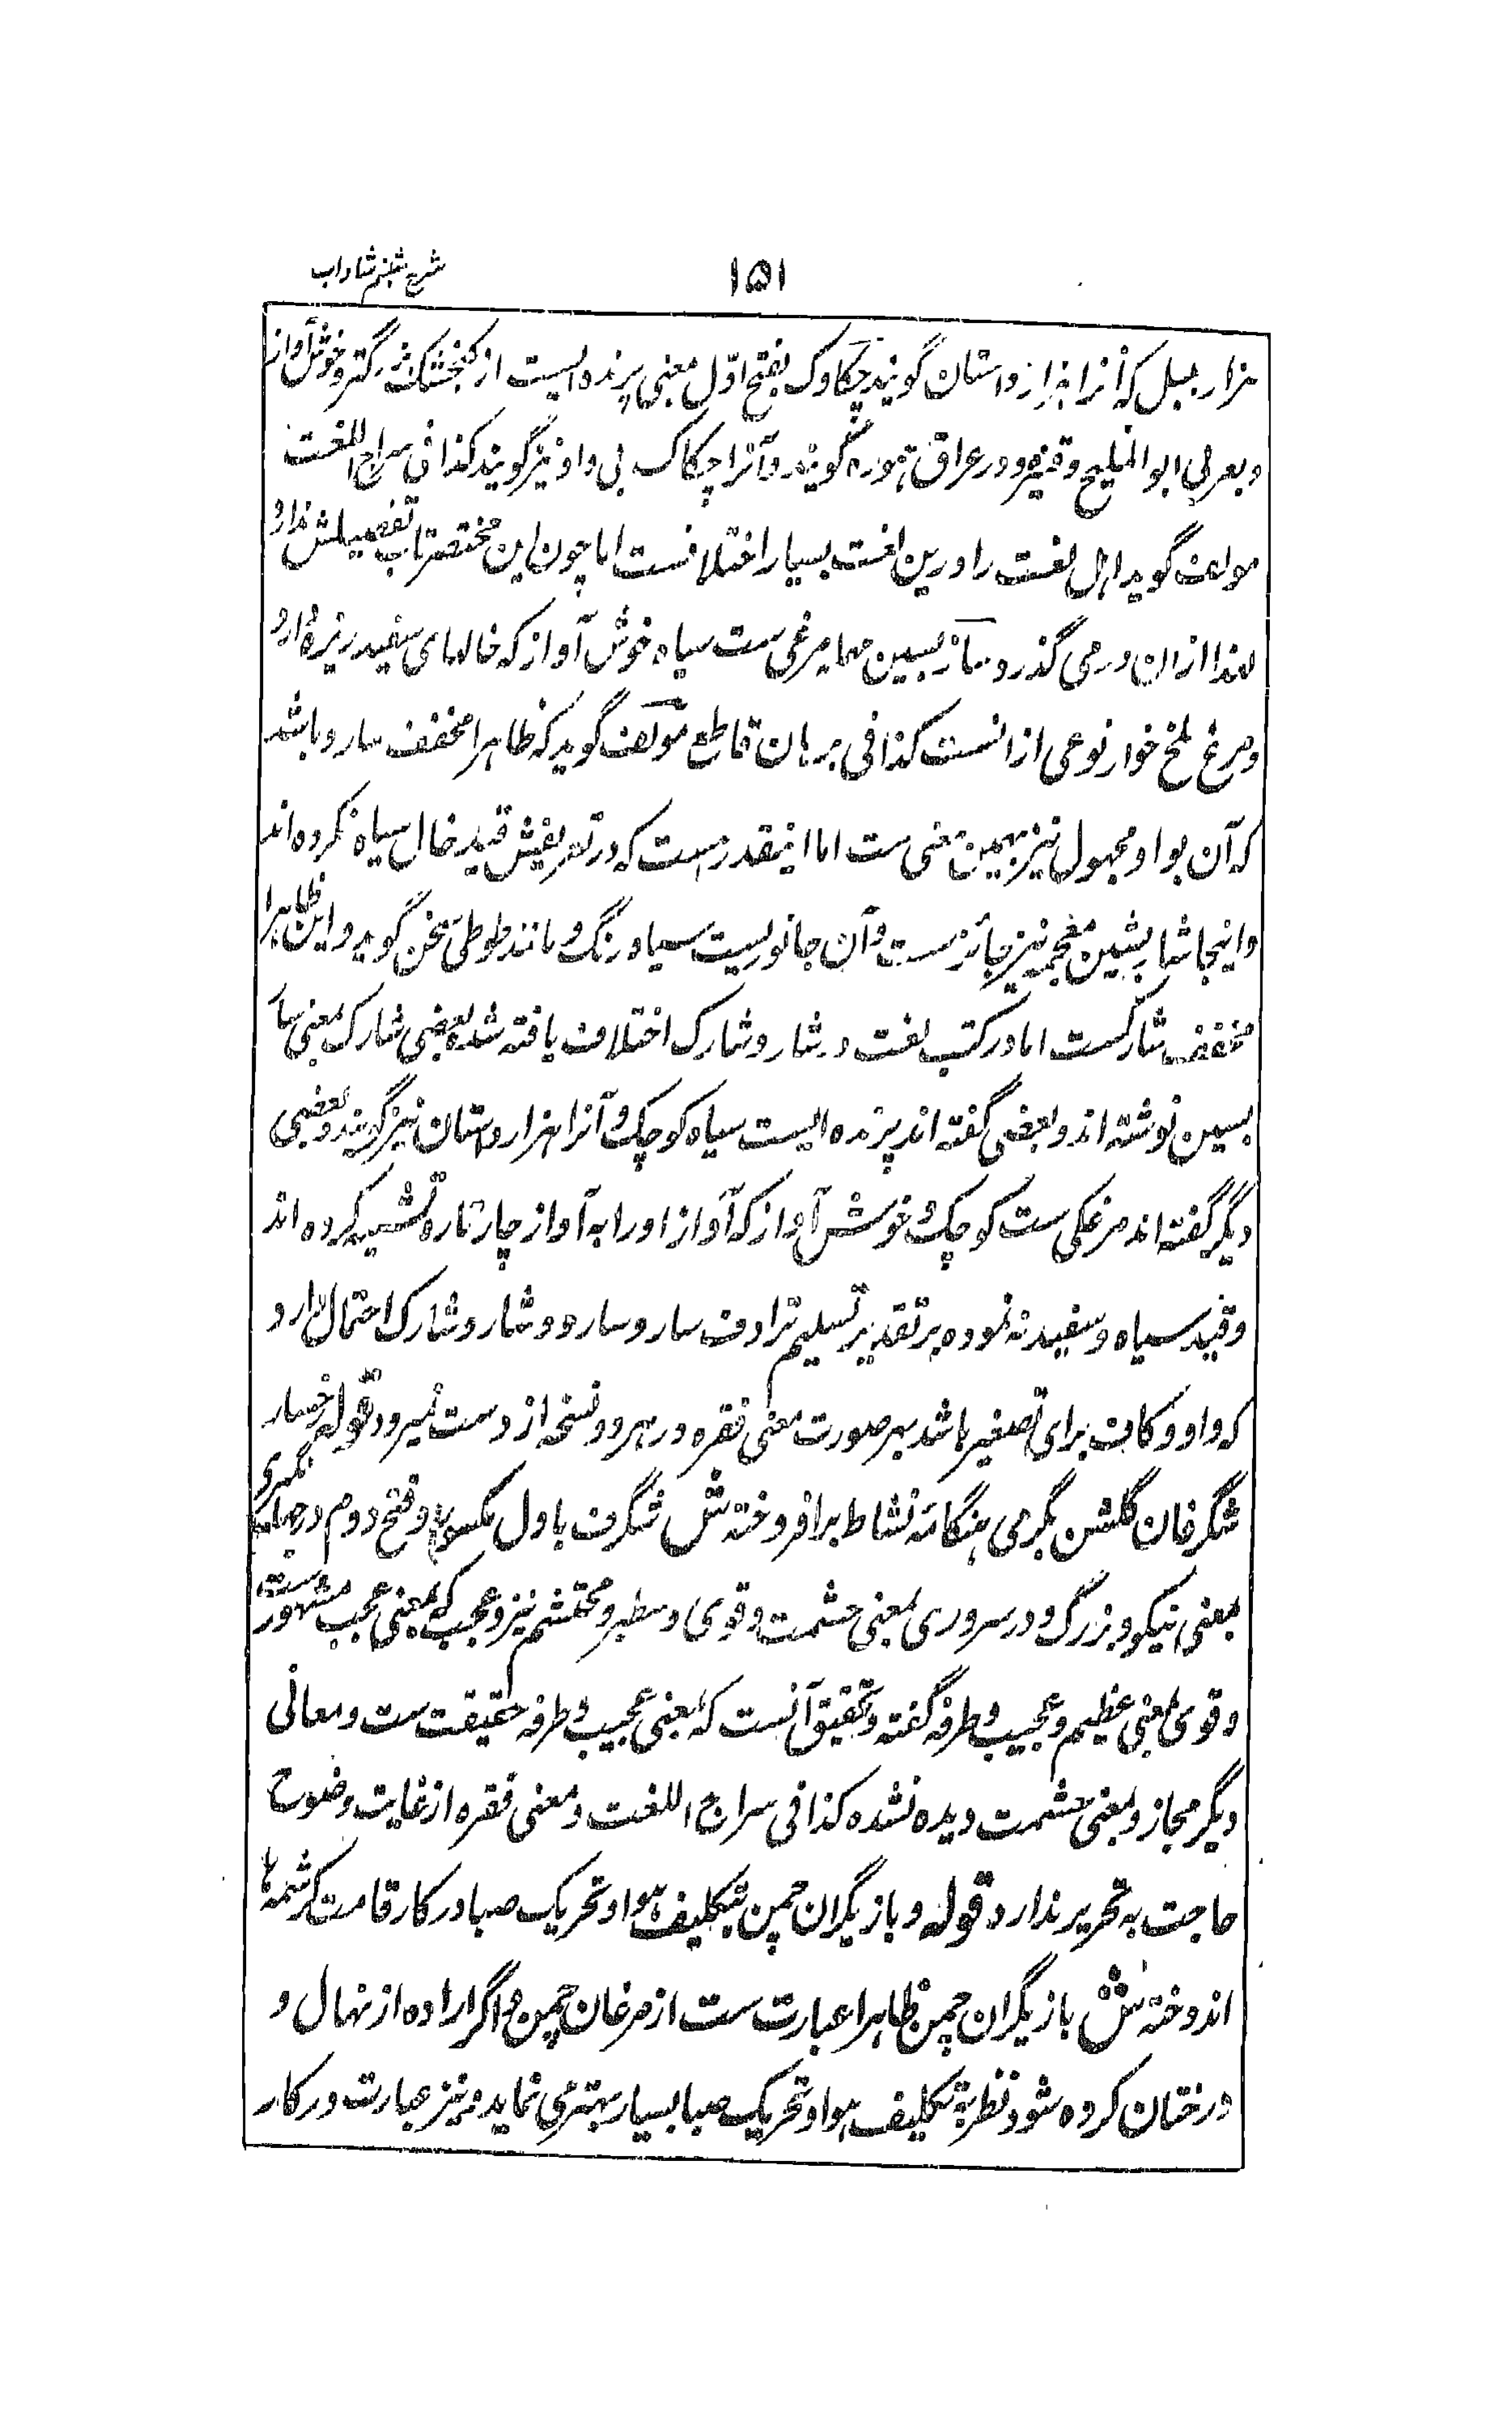 شرح شبنم شاداب
۱۵۱
هزار بلبل که آنرا هزار داستان گویند چکاوک بفتح اول بمعنی پرنده ایست از گنجشک بزرگتر و خوش آواز
و بعربی ابوالملیح و قنبره و در عراق هوره گویند و آنرا چکاک بی واو نیز گویند کذا فی سراج اللغت
مولف گوید اهل لغت را درین لغت بسیار اختلافست اما چون این مختصر تاب تفصیلش ندارد
لهذا ازان درمی گذرد سار بسین مهمله مرغی ست سیاه خوش آواز که خالهای سفید ریزه دارد
و مرغ ملخ خوار نوعی از انست کذا فی برهان قاطع مولف گوید که ظاهرا مخفف سارو باشد
که آن بواو مجهول نیز بهمین معنی ست اما اینقدر هست که در تعریفش قید خال سیاه نکرده اند
و اینجا شار بشین معجمه نیز جائز ست و آن جانوریست سیاه رنگ و مانند طوطی سخن گوید و این ظاهرا
مخفف شارکست اما در کتب لغت در شار و شارک اختلاف یافته شده بعضی شارک بمعنی سار
بسین نوشته اند و بعضی گفته اند پرنده ایست سیاه کوچک و آنرا هزار داستان نیز گویند و بعضی
دیگر گفته اند مرغکی ست کوچک و خوش آواز که آواز اورا به آواز چار تاره تشبیه کرده اند
و قید سیاه و سفید نه نموده بر تقدیر تسلیم ترادف سار و سارو و شار و شارک احتمال دارد
که واو و کاف برای تصغیر باشد بهر صورت معنی فقره در هر دو نسخه از دست نمیرود قوله رخسار
شگرفان گلشن بگرمی هنگامه نشاط برافروخته ش شگرف باول مکسور و فتح دوم در جهانگیری
بمعنی نیکو و بزرگ و در سروری بمعنی حشمت و قوی و سطبر و محتشم نیز و عجیب که بمعنی عجب مشهورست
و قوسی بمعنی عظیم و عجیب و طرفه گفته و تحقیق آنست که بمعنی عجیب و طرفه حقیقت ست و معانی
دیگر مجاز و بمعنی حشمت دیده نشده کذا فی سراج اللغت و معنی فقره از غایت وضوح
حاجت به تحریر ندارد قوله و بازیگران چمن بتکلیف هوا و تحریک صبا در کار قامت کرشمه ها
اندوخته ش بازیگران چمن ظاهرا عبارت ست از مرغان چمن و اگر اراده از نهال و
درختان کرده شود نظر به تکلیف هوا و تحریک صبا بسیار بهتر می نماید و نیز عبارت در کار